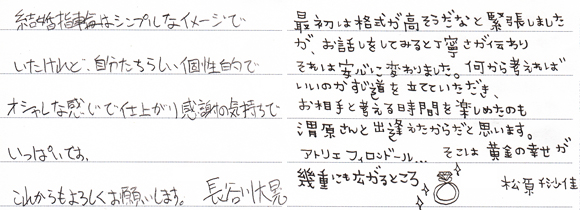 結婚指輪はシンプルなイメージで
いたけれど、自分たちらしい個性的で
オシャレな感じで仕上がり感謝の気持ちで
いっぱいです。
これからもよろしくお願いします。 長谷川大晃
最初は格式が高そうだなと緊張しました
が、お話しをしてみると丁寧さが伝わり
それは安心に変わりました。何から考えれば
いいのかすぐ道を立てていただき、
お相手と考える時間を楽しめたのも
渭原さんと出逢えたからだと思います。
アトリエフィロンドール... そこは黄金の幸せが
幾重にも広がるところ
松原 佳